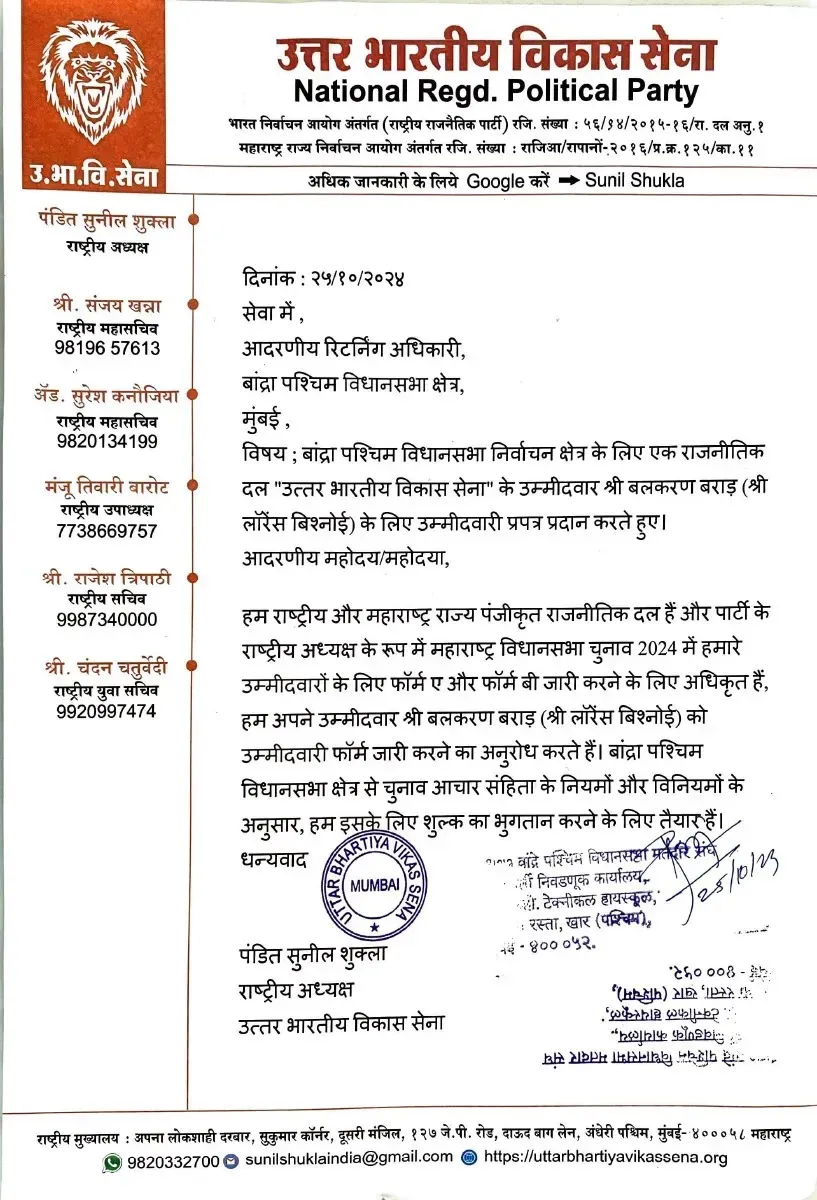 उत्तर भारतीय विकास सेना
National Regd. Political Party
भारत निर्वाचन आयोग अंतर्गत (राष्ट्रीय राजनैतिक पार्टी) रजि. संख्या : ५६/१४/२०१५-१६/रा. दल अनु.१
महाराष्ट्र राज्य निर्वाचन आयोग अंतर्गत रजि. संख्या : राजिआ/रापानों-२०१६/प्र.क्र.१२५/का.११
उ.भा.वि.सेना
अधिक जानकारी के लिये Google करें ➡ Sunil Shukla
पंडित सुनील शुक्ला
राष्ट्रीय अध्यक्ष
श्री. संजय खन्ना
राष्ट्रीय महासचिव
98196 57613
ॲड. सुरेश कनौजिया
राष्ट्रीय महासचिव
9820134199
मंजू तिवारी बारोट
राष्ट्रीय उपाध्यक्ष
7738669757
श्री. राजेश त्रिपाठी
राष्ट्रीय सचिव
9987340000
श्री. चंदन चतुर्वेदी
राष्ट्रीय युवा सचिव
9920997474
दिनांक : २५/१०/२०२४
सेवा में ,
आदरणीय रिटर्निंग अधिकारी,
बांद्रा पश्चिम विधानसभा क्षेत्र,
मुंबई ,
विषय ; बांद्रा पश्चिम विधानसभा निर्वाचन क्षेत्र के लिए एक राजनीतिक
दल "उत्तर भारतीय विकास सेना" के उम्मीदवार श्री बलकरण बराड़ (श्री
लॉरेंस बिश्नोई) के लिए उम्मीदवारी प्रपत्र प्रदान करते हुए।
आदरणीय महोदय/महोदया,
हम राष्ट्रीय और महाराष्ट्र राज्य पंजीकृत राजनीतिक दल हैं और पार्टी के
राष्ट्रीय अध्यक्ष के रूप में महाराष्ट्र विधानसभा चुनाव 2024 में हमारे
उम्मीदवारों के लिए फॉर्म ए और फॉर्म बी जारी करने के लिए अधिकृत हैं,
हम अपने उम्मीदवार श्री बलकरण बराड़ (श्री लॉरेंस बिश्नोई) को
उम्मीदवारी फॉर्म जारी करने का अनुरोध करते हैं। बांद्रा पश्चिम
विधानसभा क्षेत्र से चुनाव आचार संहिता के नियमों और विनियमों के
अनुसार, हम इसके लिए शुल्क का भुगतान करने के लिए तैयार हैं।
धन्यवाद
UTTAR BHARTIYA VIKAS SENA
MUMBAI
वांद्रे पश्चिम विधानसभा मतदार संघ
निवडणूक कार्यालय,
टेक्नीकल हायस्कूल,
रस्ता, खार (पश्चिम),
- ४०० ०५२.
25/10/23
पंडित सुनील शुक्ला
राष्ट्रीय अध्यक्ष
उत्तर भारतीय विकास सेना
पश्चिम विधानसभा मतदार संघ
निवडणूक कार्यालय,
टेक्नीकल हायस्कूल,
रस्ता, खार (पश्चिम),
- ४०० ०५२.
राष्ट्रीय मुख्यालय : अपना लोकशाही दरबार, सुकुमार कॉर्नर, दूसरी मंजिल, १२७ जे.पी. रोड, दाऊद बाग लेन, अंधेरी पश्चिम, मुंबई- ४०००५८ महाराष्ट्र
9820332700 sunilshuklaindia@gmail.com https://uttarbhartiyavikassena.org